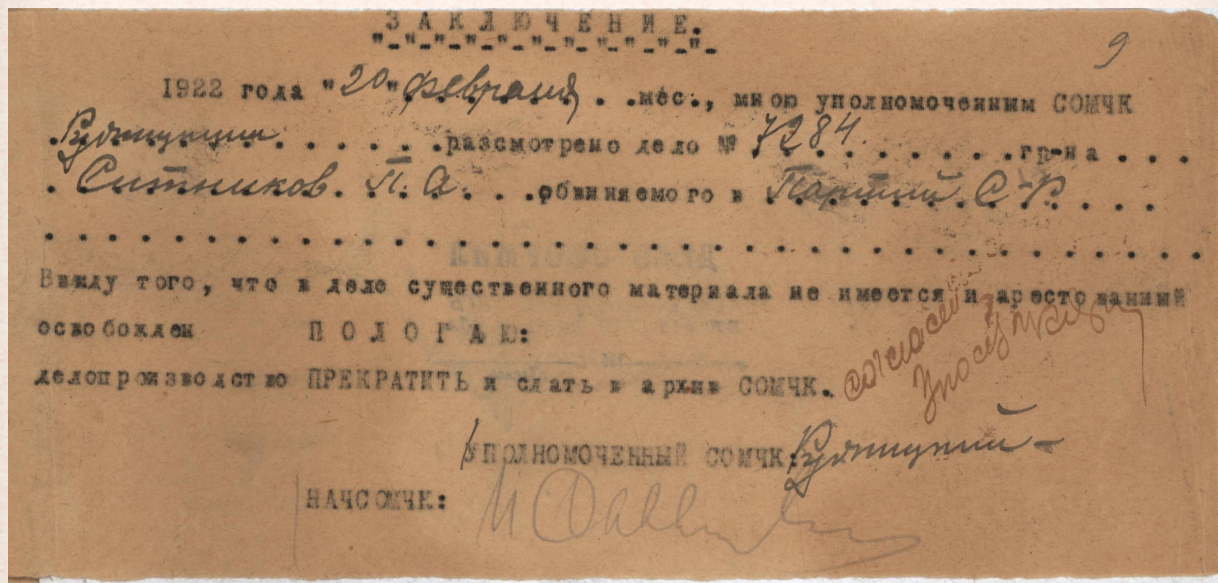 ЗАКЛЮЧЕНИЕ.
"-"-"-"-"-"-"-"-"-"-"-
9
1922 года "20" февраля . . мес., мною уполномоченным СОМЧК
. . . . . . . . разсмотрено дело № 7284. . . . . . . . гр-на . . .
. Ситников. П. А. . . обвиняемого в Партии С-Р. . . .
. . . . . . . . . . . . . . . . . . . . . . . . . . . . . . . . . . .
Ввиду того, что в деле существенного материала не имеется и арестованный
освобожден ПОЛОГАЮ:
делопроизводство ПРЕКРАТИТЬ и сдать в архив СОМЧК.
согласен
УПОЛНОМОЧЕННЫЙ СОМЧК:
НАЧСОМЧК: